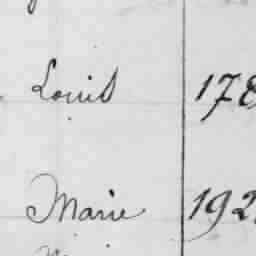 Louis 178
Marie 192